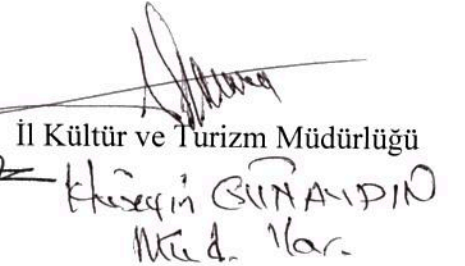 İl Kültür ve Turizm Müdürlüğü
Hüseyin GÜNAYDIN
Müd. Yar.